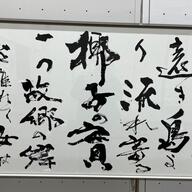 遠き島よ
り流れ寄る
椰子の實
一つ故郷の岸
を離れて汝は